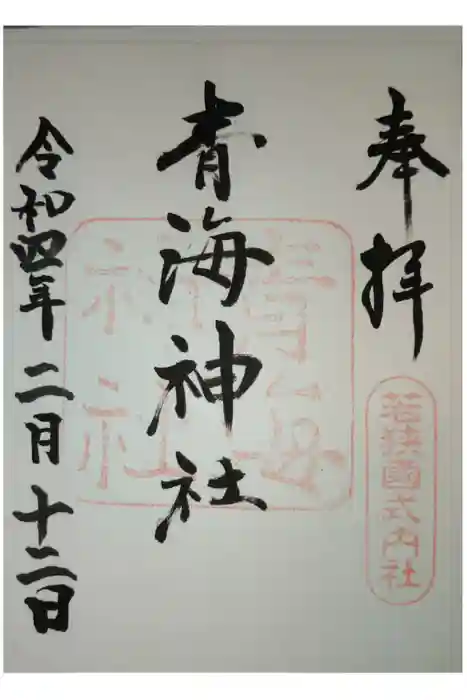 奉拝
若狭國式内社
青海神社
令和四年二月十二日